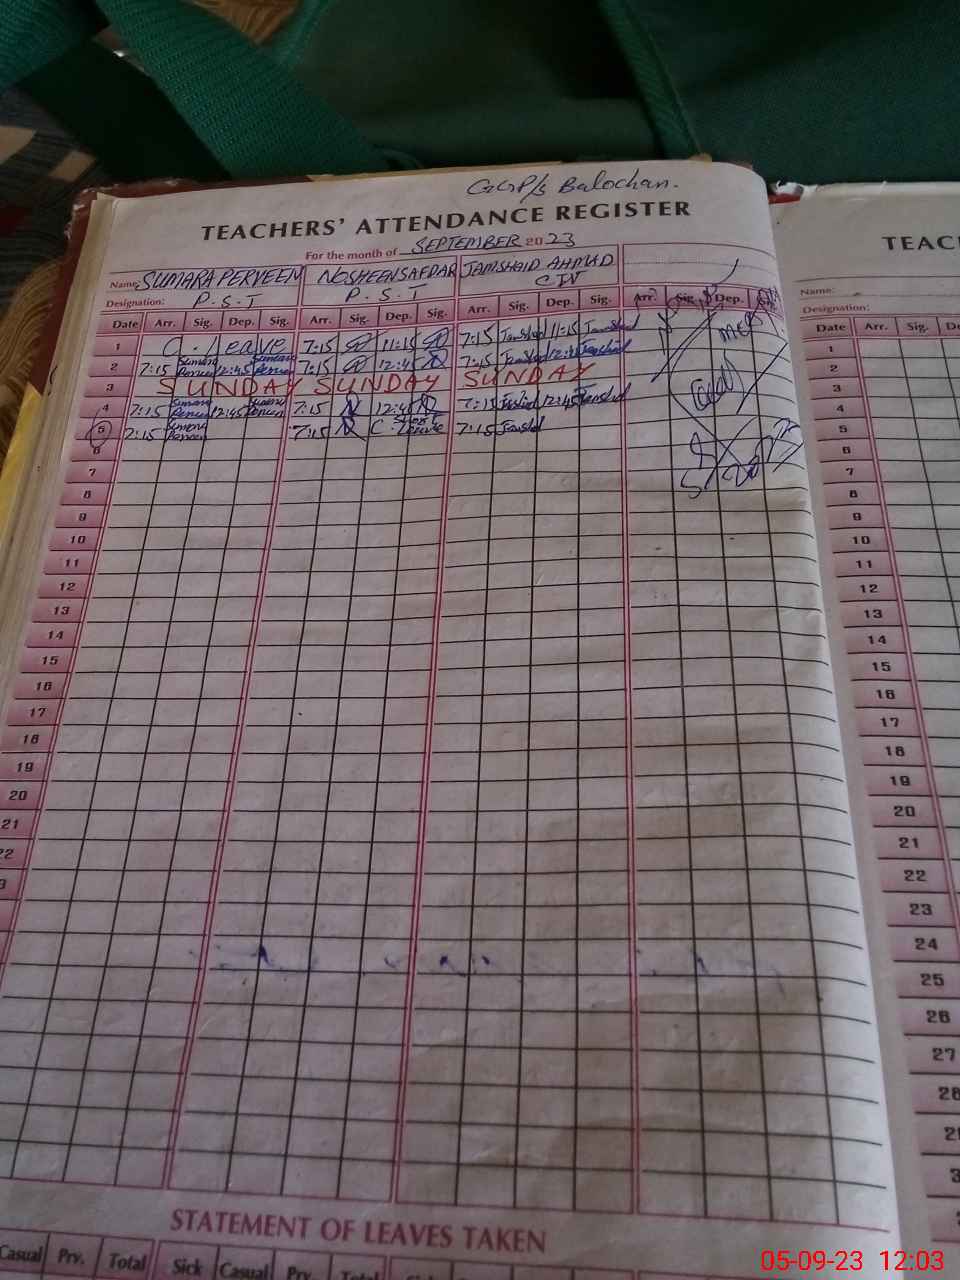 GGP/s Balochan.
TEACHERS' ATTENDANCE REGISTER
For the month of SEPTEMBER 2023
Name: SUMARA PERVEEN NOSHEEN SAFDAR JAMSHAID AHMAD
Designation: P.S.T P.S.T C-IV
Date Arr. Sig. Dep. Sig. Arr. Sig. Dep. Sig. Arr. Sig. Dep. Sig. Arr. Sig. Dep. Sig.
1 C. Leave 7:15 11:15 7:15 Jamshed 11:15 Jamshed
2 7:15 Sumara Perveen 12:45 Sumara Perveen 7:15 12:45 7:15 Jamshed 12:45 Jamshed
3 SUNDAY SUNDAY SUNDAY
4 7:15 Sumara Perveen 12:45 Sumara Perveen 7:15 12:45 7:15 Jamshed 12:45 Jamshed
5 7:15 Sumara Perveen 7:15 C. Short Leave 7:15 Jamshed
6
7
8
9
10
11
12
13
14
15
16
17
18
19
20
21
22
STATEMENT OF LEAVES TAKEN
Casual Prv. Total Sick Casual Prv. Total
TEAC
Name:
Designation:
Date Arr. Sig. De
1
2
3
4
5
6
7
8
9
10
11
12
13
14
15
16
17
18
19
20
21
22
23
24
25
26
27
28
05-09-23 12:03